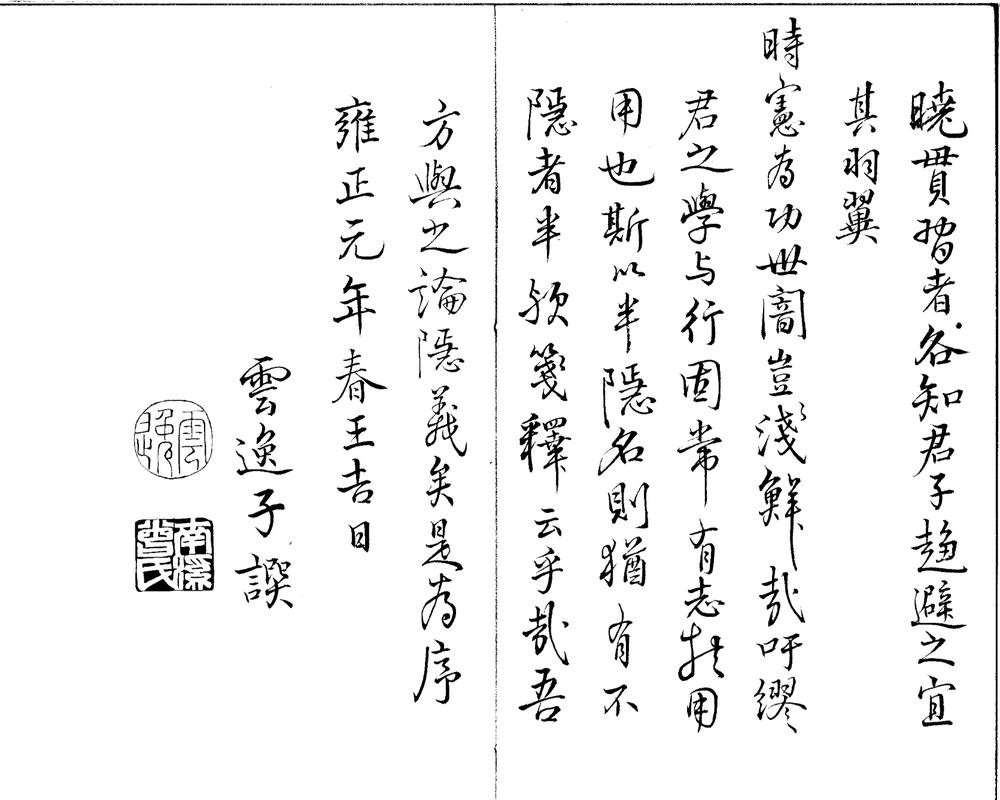 曉貫習者各知君子趨避之宜
其羽翼
時憲為功世闇豈淺鮮哉吁繆
君之學与行固常有志於用
用也斯以半隱名則猶有不
隱者半欤箋釋云乎哉吾
方輿之論隱義矣是為序
雍正元年春王吉日
雲逸子譔
雲逸
南曾氏